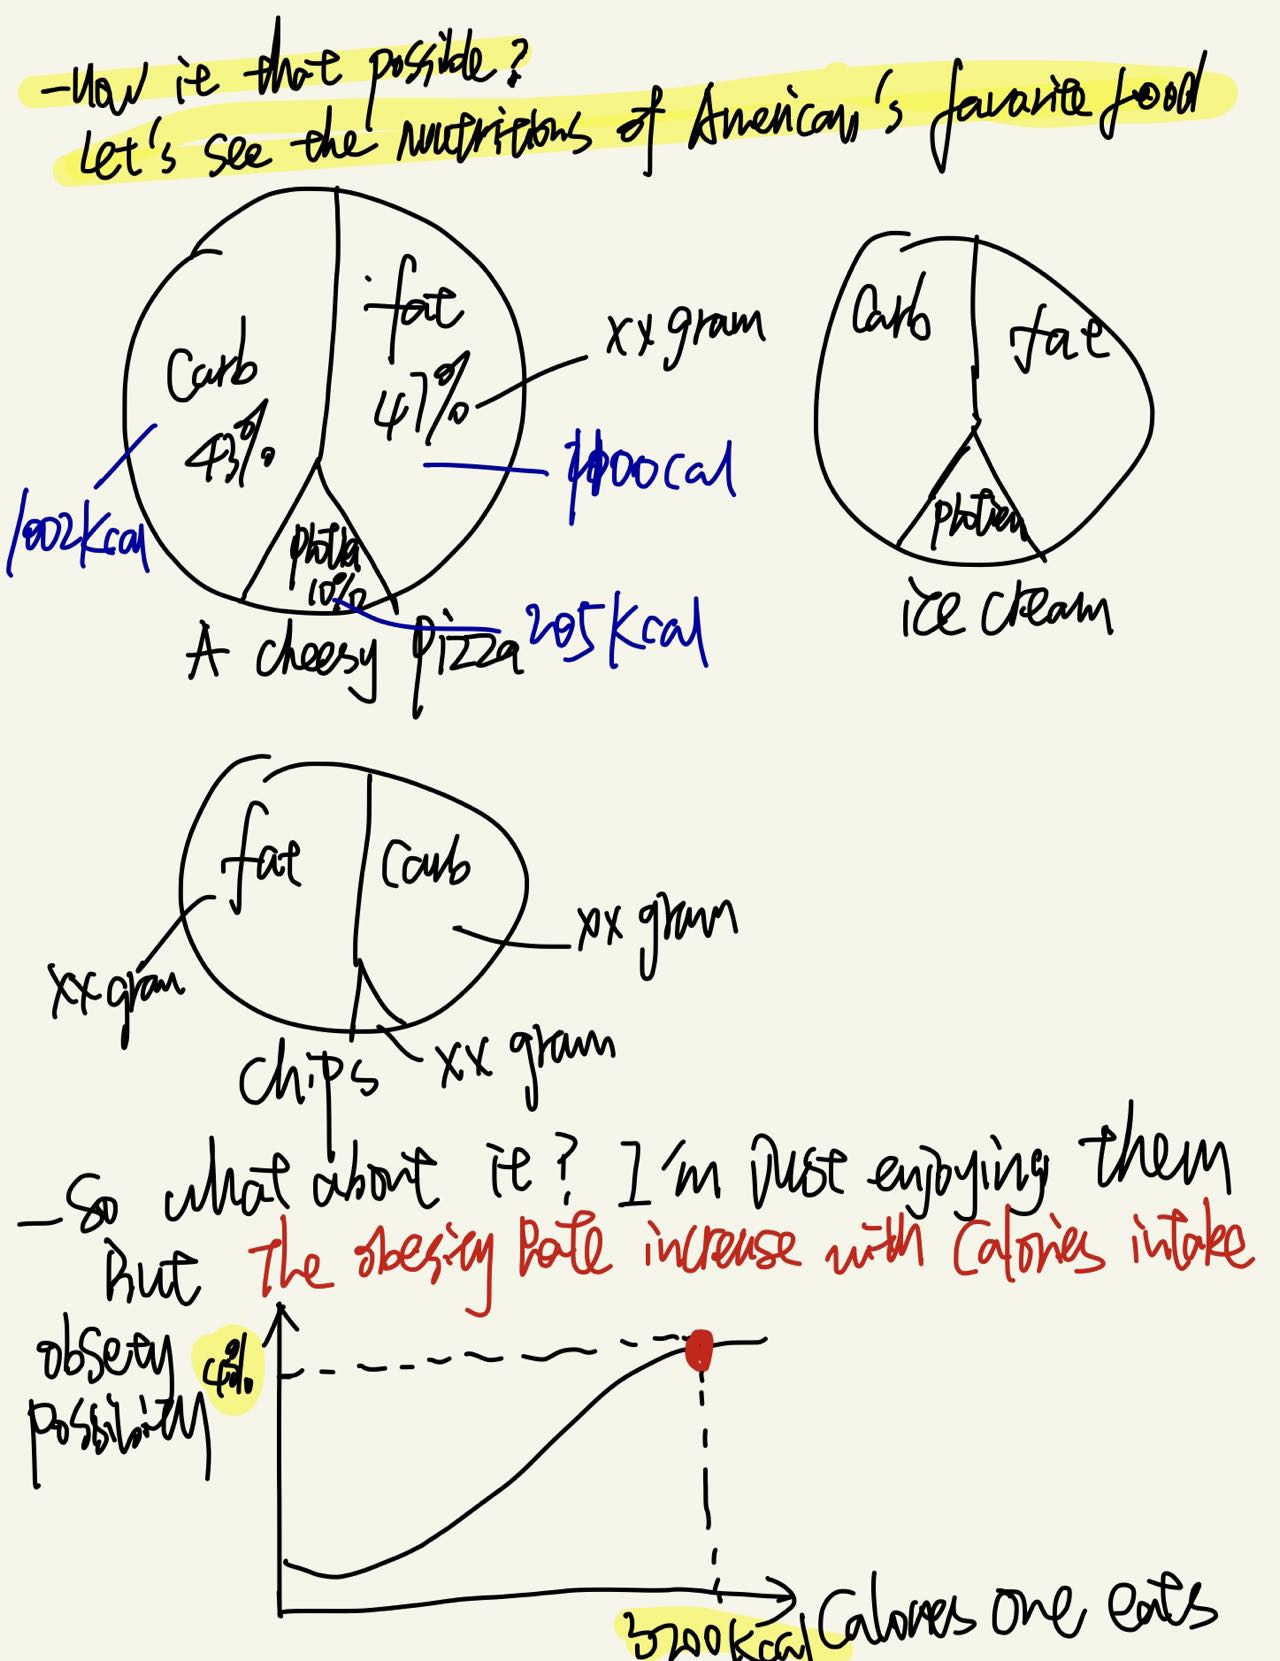 - How is that possible?
Let's see the nutritions of American's favorite food
fat
47%
xx gram
Carb
43%
1002Kcal
10%
205Kcal
A cheesy pizza
Carb
fat
ice cream
fat
Carb
xx gram
xx gram
xx gram
Chips
- So what about it? I'm just enjoying them
But The obesity Rate increase with Calories intake
possibility
3200Kcal
Calories one eats